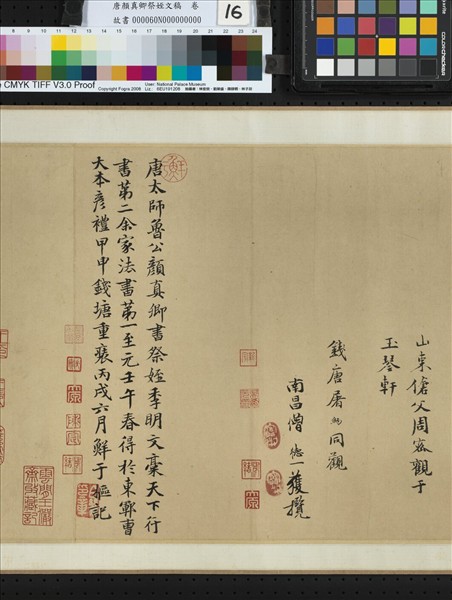 唐顏真卿祭姪文稿 卷
故書 000060N000000000
16
8 9 10 11 12 13 14 15 16 17 18 19 20 21 22 23 24
CMYK TIFF V3.0 Proof
Copyright Fogra 2008
User: National Palace Museum
colorchecker
山東傖父周密觀于
玉琴軒
錢唐屠約同觀
南昌僧德一獲攬
唐太師魯公顏真卿書祭姪季明文藁天下行
書第二余家法書第一至元壬午春得於東鄆曹
大本彥禮甲申錢塘重裝丙戌六月鮮于樞記